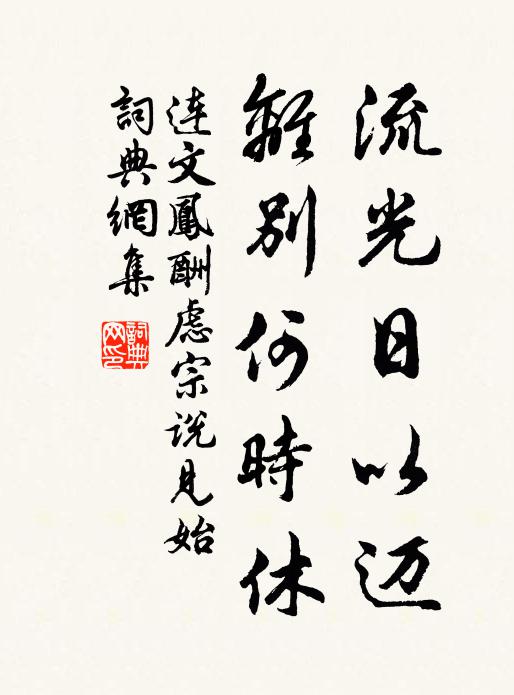 流光日以迈
離別何時休
连文鳳酬虑宗説見始
詞典網集
詞典网印